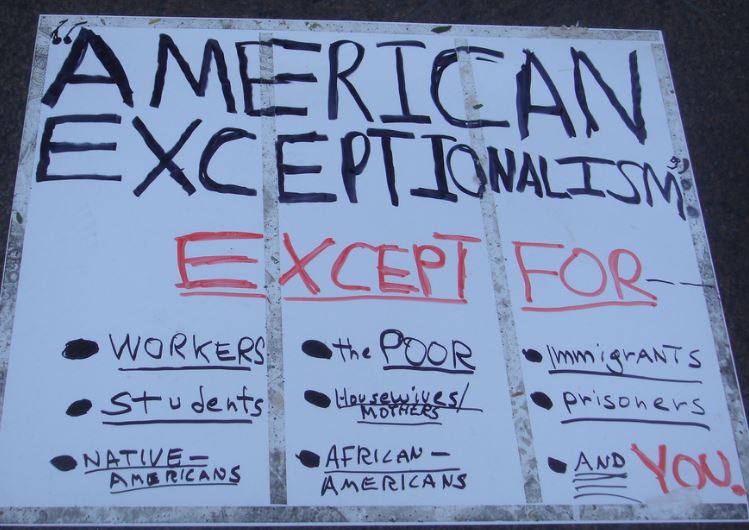 "AMERICAN
EXCEPTIONALISM"
EXCEPT FOR--
• WORKERS
• Students
• NATIVE-
AMERICANS
• the POOR
• Housewives/
MOTHERS
• AFRICAN-
AMERICANS
• Immigrants
• prisoners
• AND YOU.